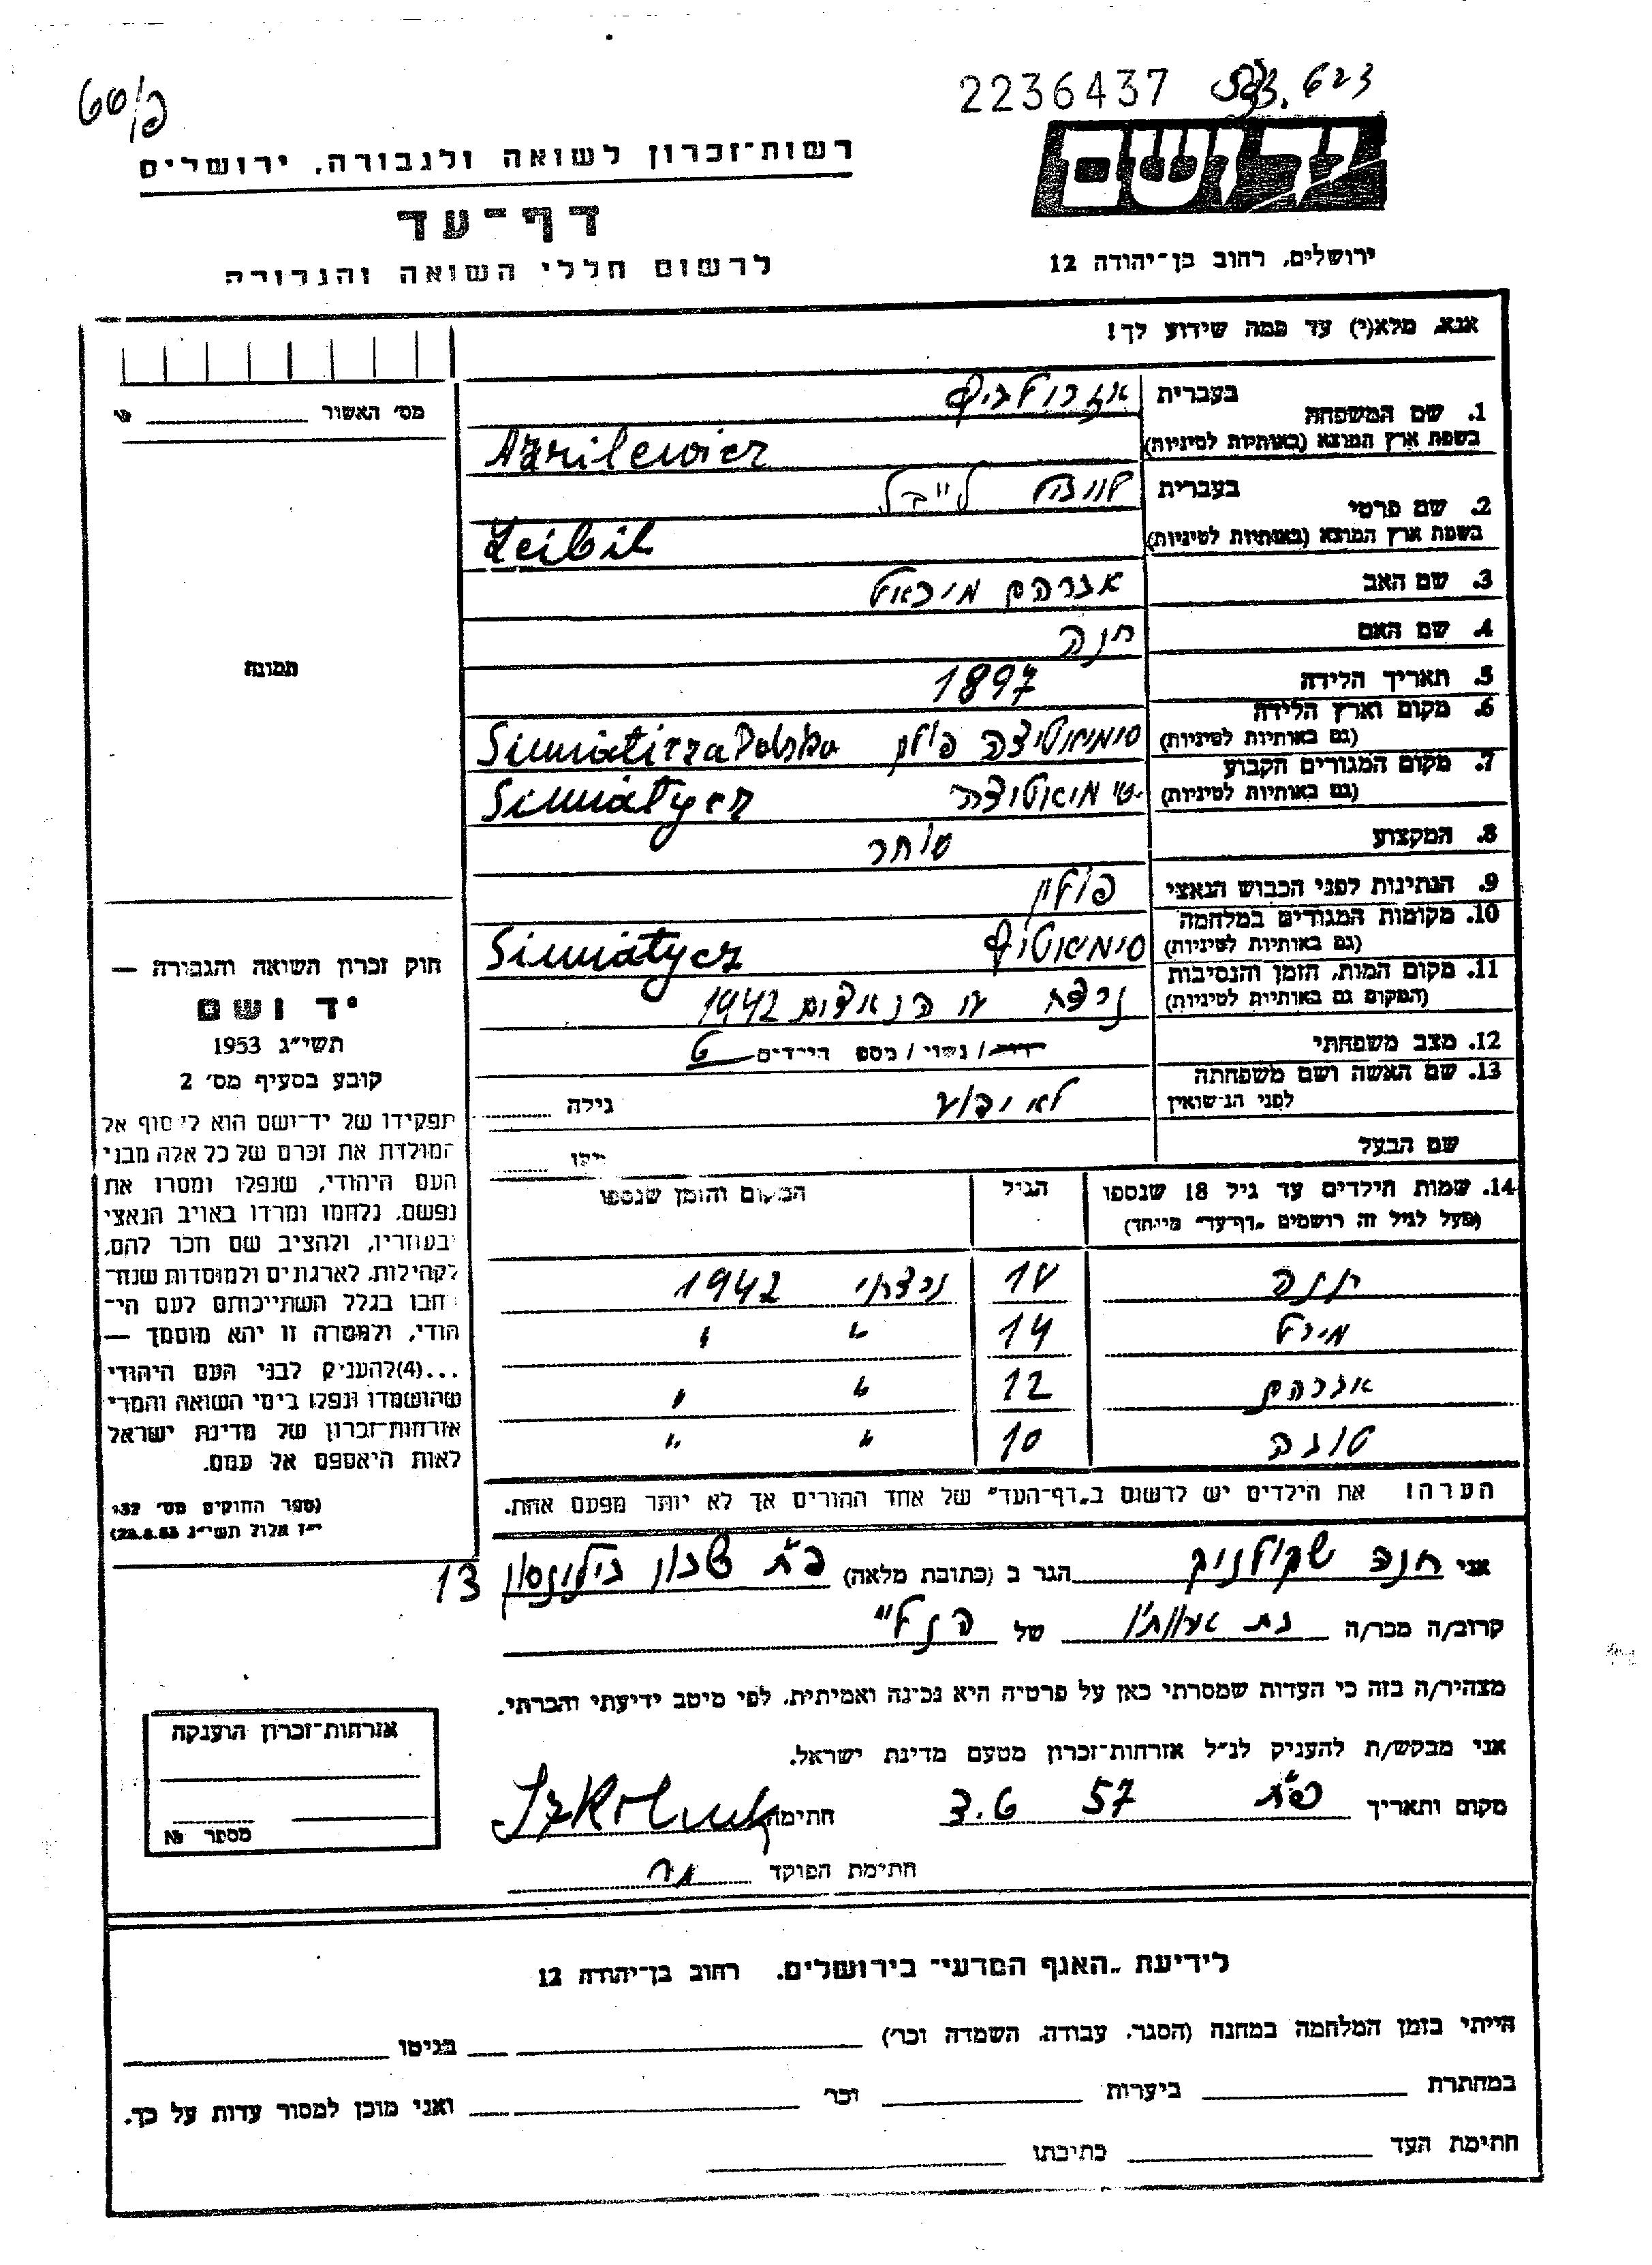 2236437 623
60/פ
יד ושם
רשות־זכרון לשואה ולגבורה, ירושלים
דף־עד
לרשום חללי השואה והגבורה
ירושלים, רחוב בן־יהודה 12
אנא, מלא(י) עד כמה שידוע לך!
מס׳ האשור
1. שם המשפחה
בעברית
בשפת ארץ המוצא (באותיות לטיניות) Azrilewicz
2. שם פרטי
בעברית לייבל
בשפת ארץ המוצא (באותיות לטיניות) Leibil
3. שם האב אברהם מיכאל
4. שם האם חנה
5. תאריך הלידה 1897
6. מקום וארץ הלידה
(גם באותיות לטיניות) סימיאטיצה פולין Simiaticza Polska
7. מקום המגורים הקבוע
(גם באותיות לטיניות) סימיאטיצה Simiatycz
8. המקצוע סוחר
9. הנתינות לפני הכבוש הנאצי פולין
10. מקומות המגורים במלחמה
(גם באותיות לטיניות) Simiatycz
11. מקום המות, הזמן והנסיבות
(המקום גם באותיות לטיניות) נרצח הנאצים 1942
12. מצב משפחתי רווק / נשוי / מספר הילדים 6
13. שם האשה ושם משפחתה
לפני הנישואין לא ידוע גילה
שם הבעל גילו
14. שמות הילדים עד גיל 18 שנספו
(מעל לגיל זה רושמים „דף־עד״ מיוחד)
הגיל
המקום והזמן שנספו
יונה 17 נרצחו 1942
מירל 14 " "
אברהם 12 " "
טובה 10 " "
הערה! את הילדים יש לרשום ב„דף־העד״ של אחד ההורים אך לא יותר מפעם אחת.
תמונה
חוק זכרון השואה והגבורה —
יד ושם
תשי״ג 1953
קובע בסעיף מס׳ 2
תפקידו של יד־ושם הוא לאסוף אל
המולדת את זכרם של כל אלה מבני
העם היהודי, שנפלו ומסרו את
נפשם, נלחמו ומרדו באויב הנאצי
ובעוזריו, ולהציב שם וזכר להם,
לקהילות, לארגונים ולמוסדות שנח־
רבו בגלל השתייכותם לעם הי־
הודי, ולמטרה זו יהא מוסמך —
...(4)להעניק לבני העם היהודי
שהושמדו ונפלו בימי השואה והמרי
אזרחות־זכרון של מדינת ישראל
לאות היאספם אל עמם.
(ספר החוקים מס׳ 132
י״ז אלול תשי״ג 28.8.53)
אני חנה שקולניק הגר ב (כתובת מלאה) פ״ת שכון בילינסון 13
קרוב/ה מכר/ה בת של הנ״ל
מצהיר/ה בזה כי העדות שמסרתי כאן על פרטיה היא נכונה ואמיתית, לפי מיטב ידיעתי והכרתי.
אני מבקש/ת להעניק לנ״ל אזרחות־זכרון מטעם מדינת ישראל.
מקום ותאריך פ״ת 57 חתימה Szkolnik
חתימת הפוקד
אזרחות־זכרון הוענקה
מספר №
לידיעת „האגף המדעי״ בירושלים, רחוב בן־יהודה 12
הייתי בזמן המלחמה במחנה (הסגר, עבודה, השמדה וכו׳) בגיטו
במחתרת ביערות וכו׳ ואני מוכן למסור עדות על כך.
חתימת העד כתיבתו